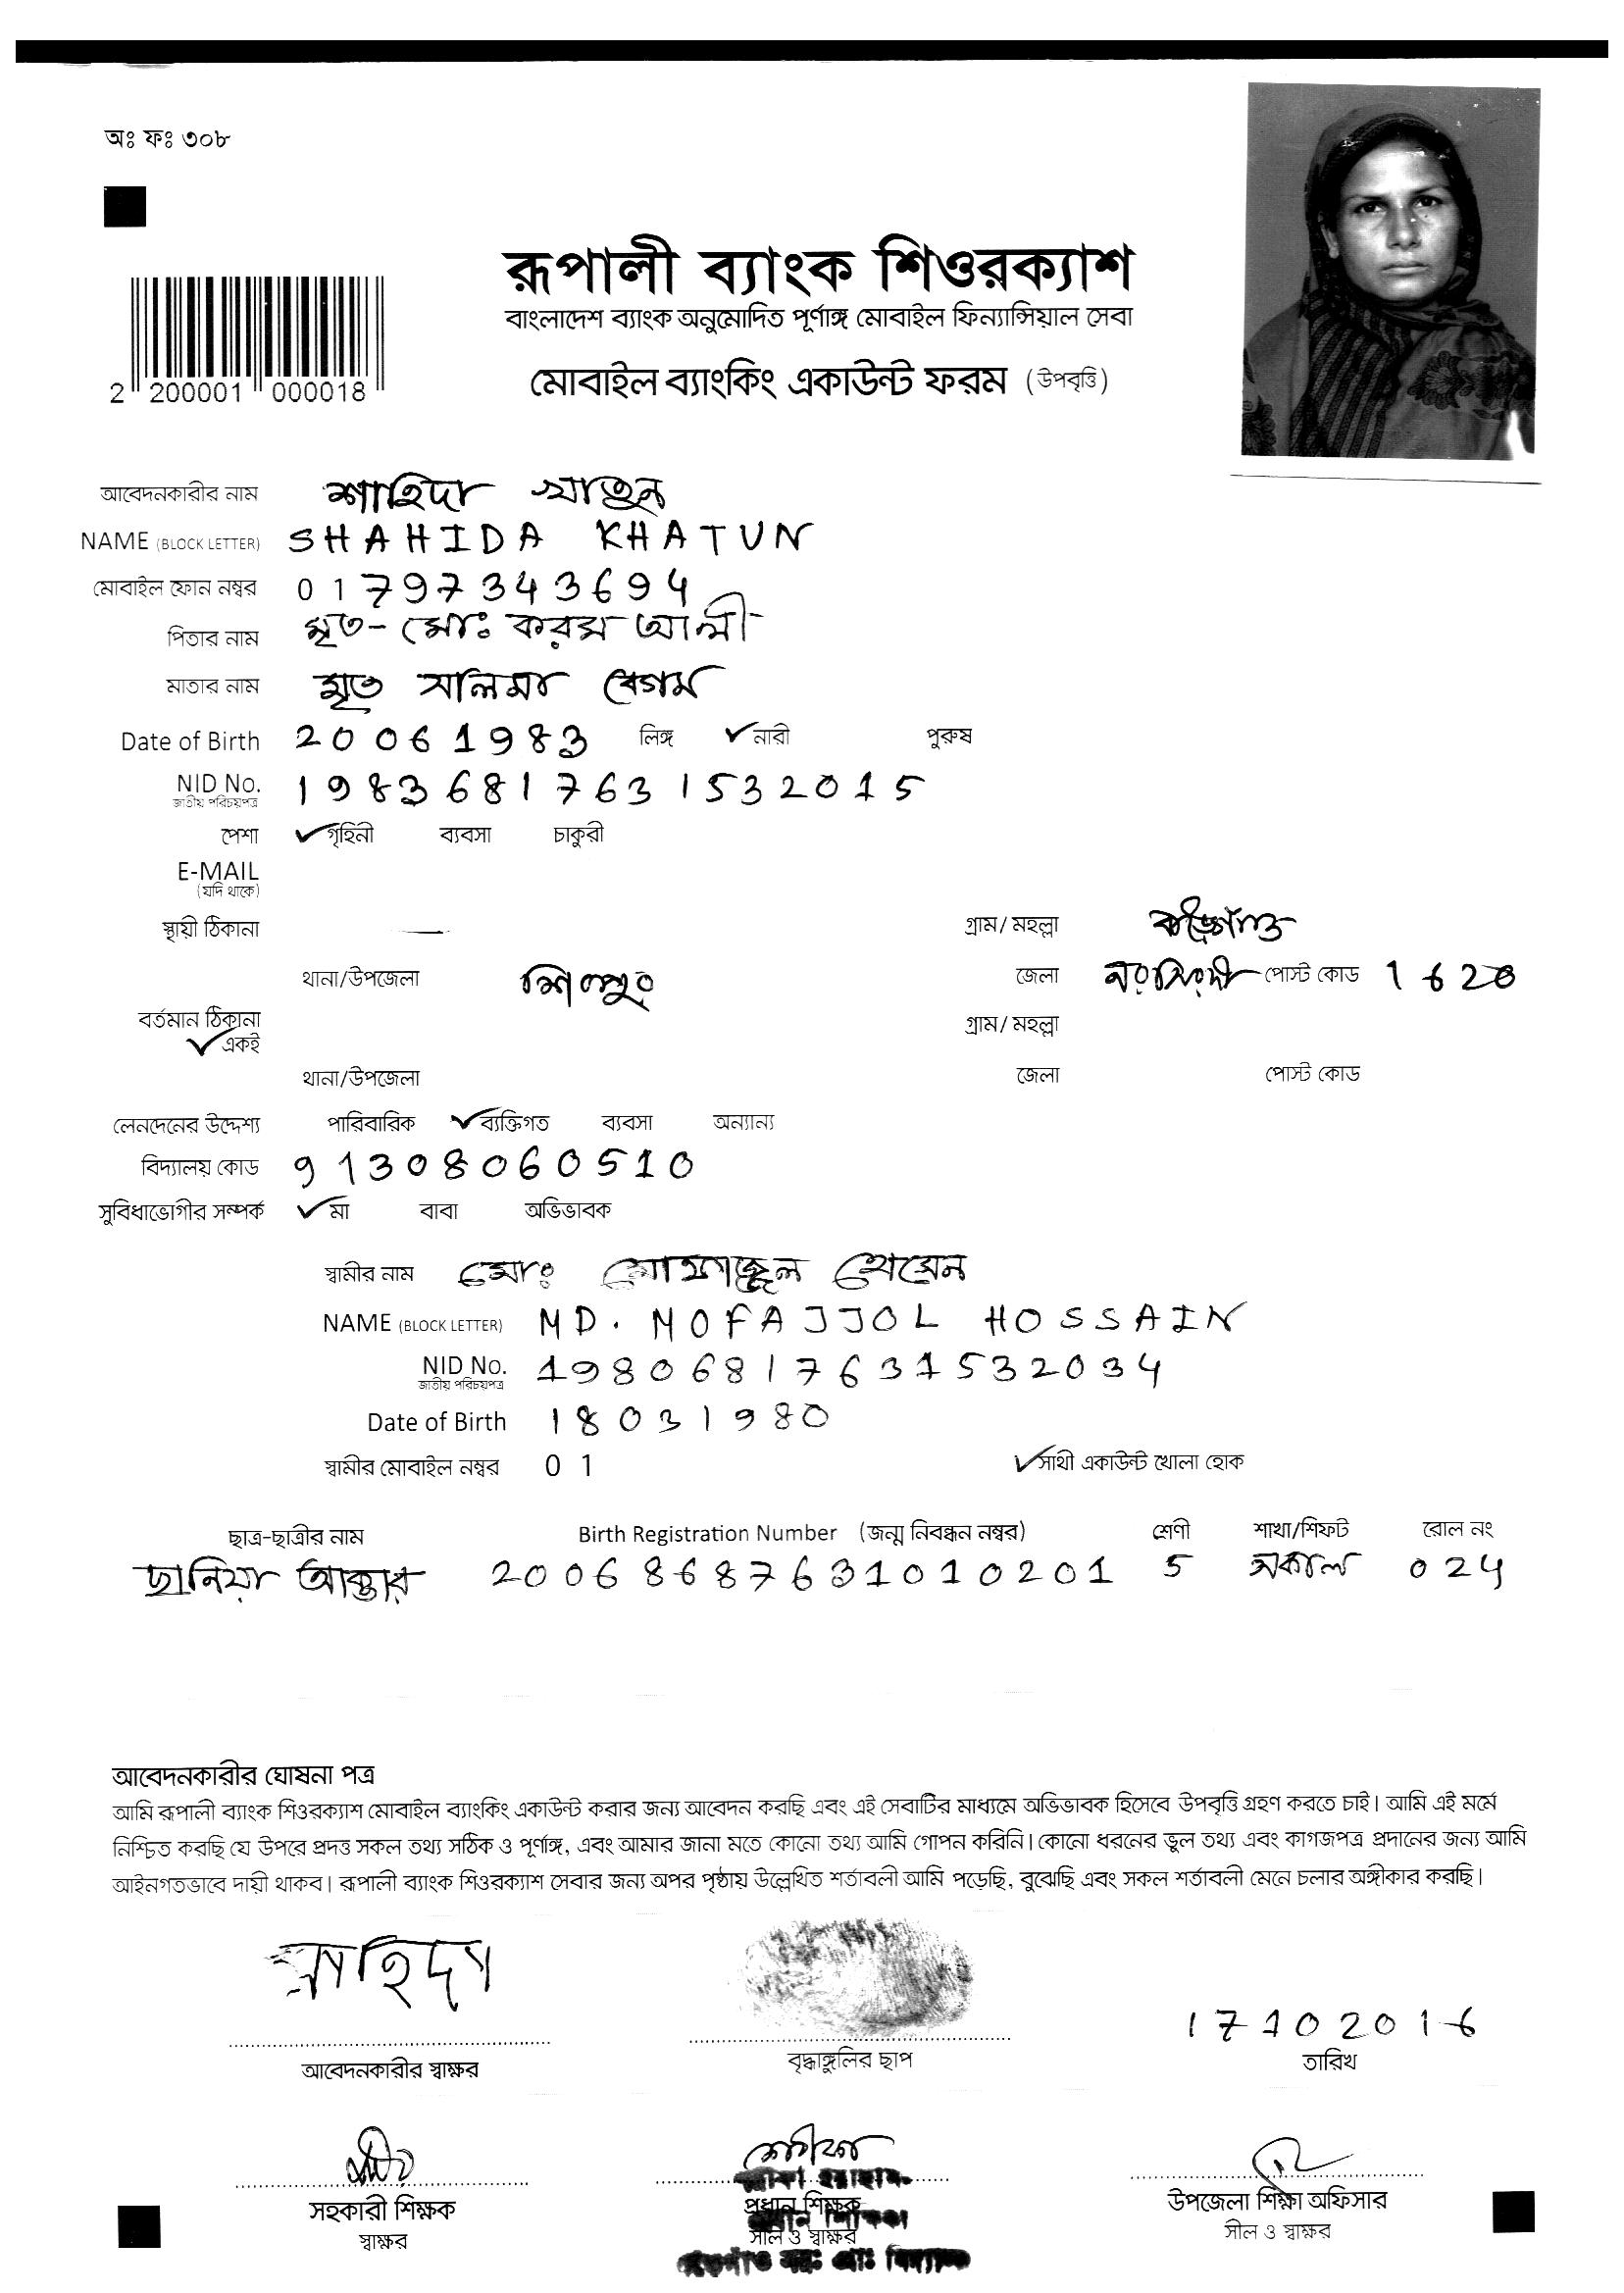 অঃ ফঃ ৩০৮
রূপালী ব্যাংক শিওরক্যাশ
বাংলাদেশ ব্যাংক অনুমোদিত পূর্ণাঙ্গ মোবাইল ফিন্যান্সিয়াল সেবা
মোবাইল ব্যাংকিং একাউন্ট ফরম (উপবৃত্তি)
2 200001 000018
আবেদনকারীর নাম শাহিদা খাতুন
NAME (BLOCK LETTER) SHAHIDA KHATUN
মোবাইল ফোন নম্বর 01797343694
পিতার নাম মৃত- মোঃ করম আলী
মাতার নাম মৃত সালিমা বেগম
Date of Birth 20061983 লিঙ্গ ✓নারী পুরুষ
NID No. 19836817631532015
জাতীয় পরিচয়পত্র
পেশা ✓গৃহিনী ব্যবসা চাকুরী
E-MAIL
(যদি থাকে)
স্থায়ী ঠিকানা গ্রাম/ মহল্লা
থানা/উপজেলা শিবপুর জেলা নরসিংদী পোস্ট কোড 1620
বর্তমান ঠিকানা গ্রাম/ মহল্লা
✓একই
থানা/উপজেলা জেলা পোস্ট কোড
লেনদেনের উদ্দেশ্য পারিবারিক ✓ব্যক্তিগত ব্যবসা অন্যান্য
বিদ্যালয় কোড 91308060510
সুবিধাভোগীর সম্পর্ক ✓মা বাবা অভিভাবক
স্বামীর নাম মোঃ মোফাজ্জল হোসেন
NAME (BLOCK LETTER) MD. MOFAJJOL HOSSAIN
NID No. 19806817631532034
জাতীয় পরিচয়পত্র
Date of Birth 18031980
স্বামীর মোবাইল নম্বর 01 ✓সাথী একাউন্ট খোলা হোক
ছাত্র-ছাত্রীর নাম Birth Registration Number (জন্ম নিবন্ধন নম্বর) শ্রেণী শাখা/শিফট রোল নং
ছানিয়া আক্তার 20068687631010201 5 সকাল 024
আবেদনকারীর ঘোষনা পত্র
আমি রূপালী ব্যাংক শিওরক্যাশ মোবাইল ব্যাংকিং একাউন্ট করার জন্য আবেদন করছি এবং এই সেবাটির মাধ্যমে অভিভাবক হিসেবে উপবৃত্তি গ্রহণ করতে চাই। আমি এই মর্মে
নিশ্চিত করছি যে উপরে প্রদত্ত সকল তথ্য সঠিক ও পূর্ণাঙ্গ, এবং আমার জানা মতে কোনো তথ্য আমি গোপন করিনি। কোনো ধরনের ভুল তথ্য এবং কাগজপত্র প্রদানের জন্য আমি
আইনগতভাবে দায়ী থাকব। রূপালী ব্যাংক শিওরক্যাশ সেবার জন্য অপর পৃষ্ঠায় উল্লেখিত শর্তাবলী আমি পড়েছি, বুঝেছি এবং সকল শর্তাবলী মেনে চলার অঙ্গীকার করছি।
শাহিদা 17102016
আবেদনকারীর স্বাক্ষর বৃদ্ধাঙ্গুলির ছাপ তারিখ
সহকারী শিক্ষক প্রধান শিক্ষক উপজেলা শিক্ষা অফিসার
স্বাক্ষর সীল ও স্বাক্ষর সীল ও স্বাক্ষর